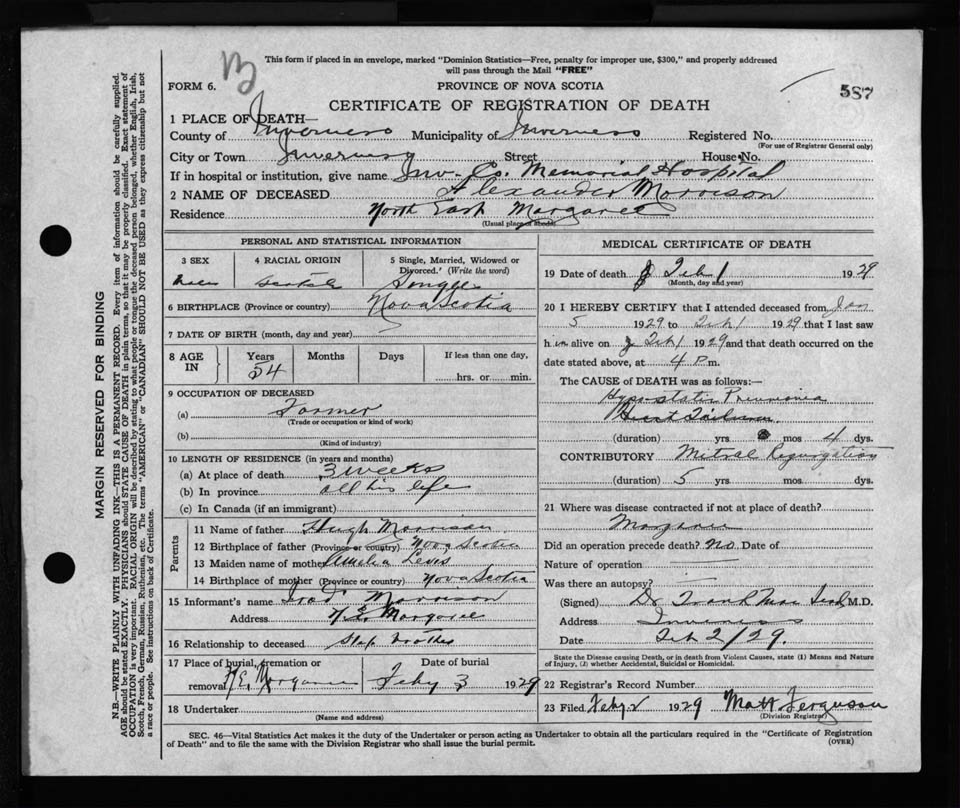 This form if placed in an envelope, marked "Dominion Statistics—Free, penalty for improper use, $300," and properly addressed
will pass through the Mail "FREE"
FORM 6.
PROVINCE OF NOVA SCOTIA
587
CERTIFICATE OF REGISTRATION OF DEATH
1 PLACE OF DEATH—
County of Inverness Municipality of Inverness Registered No.
(For use of Registrar General only)
City or Town Inverness Street House No.
If in hospital or institution, give name Inv. Co. Memorial Hospital
2 NAME OF DECEASED Alexander Morrison
Residence North East Margaree
(Usual place of abode)
PERSONAL AND STATISTICAL INFORMATION
3 SEX
4 RACIAL ORIGIN
5 Single, Married, Widowed or
Divorced. (Write the word)
Male Scotch Single
6 BIRTHPLACE (Province or country) Nova Scotia
7 DATE OF BIRTH (month, day and year)
8 AGE
IN
Years
Months
Days
If less than one day,
54
hrs. or min.
9 OCCUPATION OF DECEASED
(a) Farmer
(Trade or occupation or kind of work)
(b)
(Kind of industry)
10 LENGTH OF RESIDENCE (in years and months)
(a) At place of death 3 weeks
(b) In province all his life
(c) In Canada (if an immigrant)
Parents
11 Name of father Hugh Morrison
12 Birthplace of father (Province or country) Nova Scotia
13 Maiden name of mother Amelia Levis
14 Birthplace of mother (Province or country) Nova Scotia
15 Informant's name Morrison
Address N.E. Margaree
16 Relationship to deceased Step brother
17 Place of burial, cremation or
removal N.E. Margaree
Date of burial
Feby 3 1929
18 Undertaker
(Name and address)
MEDICAL CERTIFICATE OF DEATH
19 Date of death Feb 1 1929
(Month, day and year)
20 I HEREBY CERTIFY that I attended deceased from Jan
5 1929 to Feb 1 1929 that I last saw
him alive on Feb 1 1929 and that death occurred on the
date stated above, at 4 P.m.
The CAUSE of DEATH was as follows:—
Hypostatic Pneumonia
Heart Failure
(duration) yrs mos 4 dys.
CONTRIBUTORY Mitral Regurgitation
(duration) 5 yrs. mos. dys.
21 Where was disease contracted if not at place of death?
Margaree
Did an operation precede death? No Date of
Nature of operation
Was there an autopsy?
(Signed) Dr Frank M.D.
Address Inverness
Date Feb 2/29.
State the Disease causing Death, or in death from Violent Causes, state (1) Means and Nature
of Injury, (2) whether Accidental, Suicidal or Homicidal.
22 Registrar's Record Number
23 Filed Feby 2 1929 Matt Ferguson
(Division Registrar)
SEC. 46—Vital Statistics Act makes it the duty of the Undertaker or person acting as Undertaker to obtain all the particulars required in the "Certificate of Registration
of Death" and to file the same with the Division Registrar who shall issue the burial permit.
(OVER)
MARGIN RESERVED FOR BINDING
N.B.—WRITE PLAINLY WITH UNFADING INK—THIS IS A PERMANENT RECORD. Every item of information should be carefully supplied.
AGE should be stated EXACTLY. PHYSICIANS should STATE CAUSE OF DEATH in plain terms, so that it may be properly classified. Exact statement of
OCCUPATION is very important. RACIAL ORIGIN will be described by stating to what people or tongue the deceased person belonged, whether English, Irish,
Scotch, French, German, Russian, Ruthenian, etc. The terms "AMERICAN" or "CANADIAN" SHOULD NOT BE USED as they express citizenship but not
a race or people. See instructions on back of Certificate.